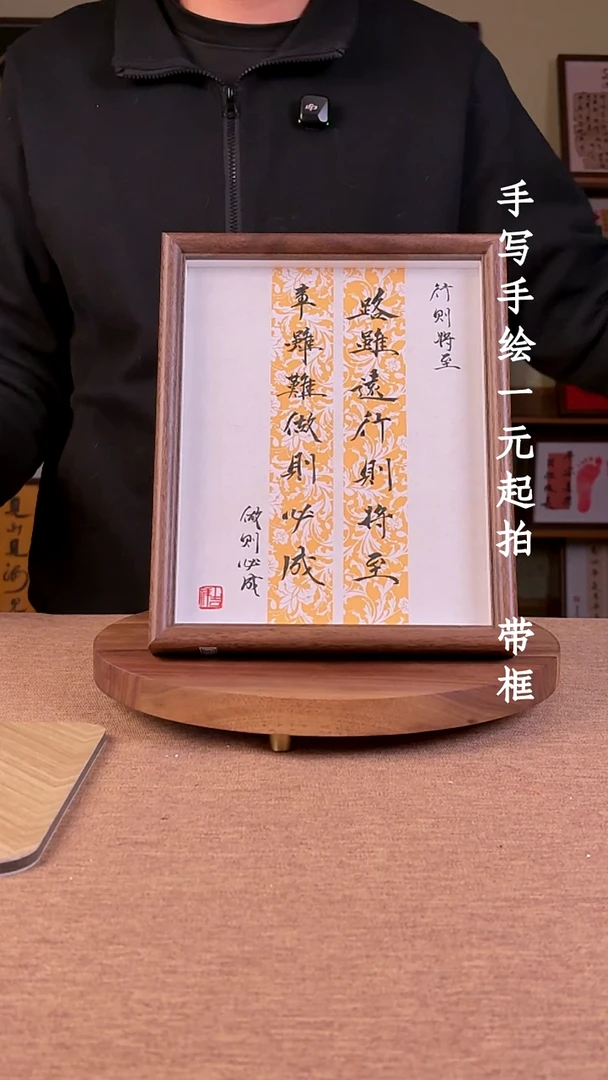 行则将至
路雖遠行則将至
事雖難做則必成
做则必成
手写手绘一元起拍 带框